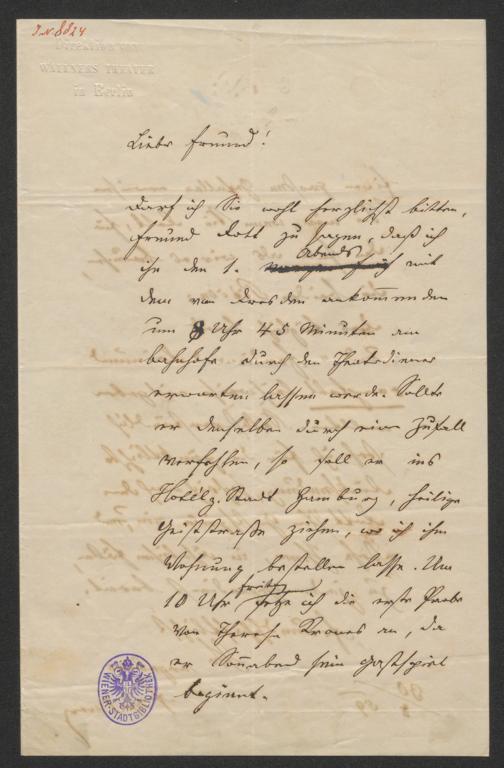 J.N 8824
Direktion von
WALLNERS THEATER
in Berlin
Lieber Freund!
Darf ich Sie wohl herzlichst bitten,
Freund Rott zu sagen, daß ich
ihn den 1. Abends mit
dem von Dresden ankommenden
um 8 Uhr 45 Minuten am
Bahnhofe durch den Theaterdiener
erwarten lassen werde. Sollte
er denselben durch einen Zufall
verfehlen, so soll er ins
Hotel z. Stadt Hamburg, heilige
Geiststraße ziehen, wo ich ihm
Wohnung bestellen lasse. Um
10 Uhr früh setze ich die erste Probe
von Therese Krones an, da
er Sonnabend sein Gastspiel
beginnt.
WIENER STADTBIBLIOTHEK